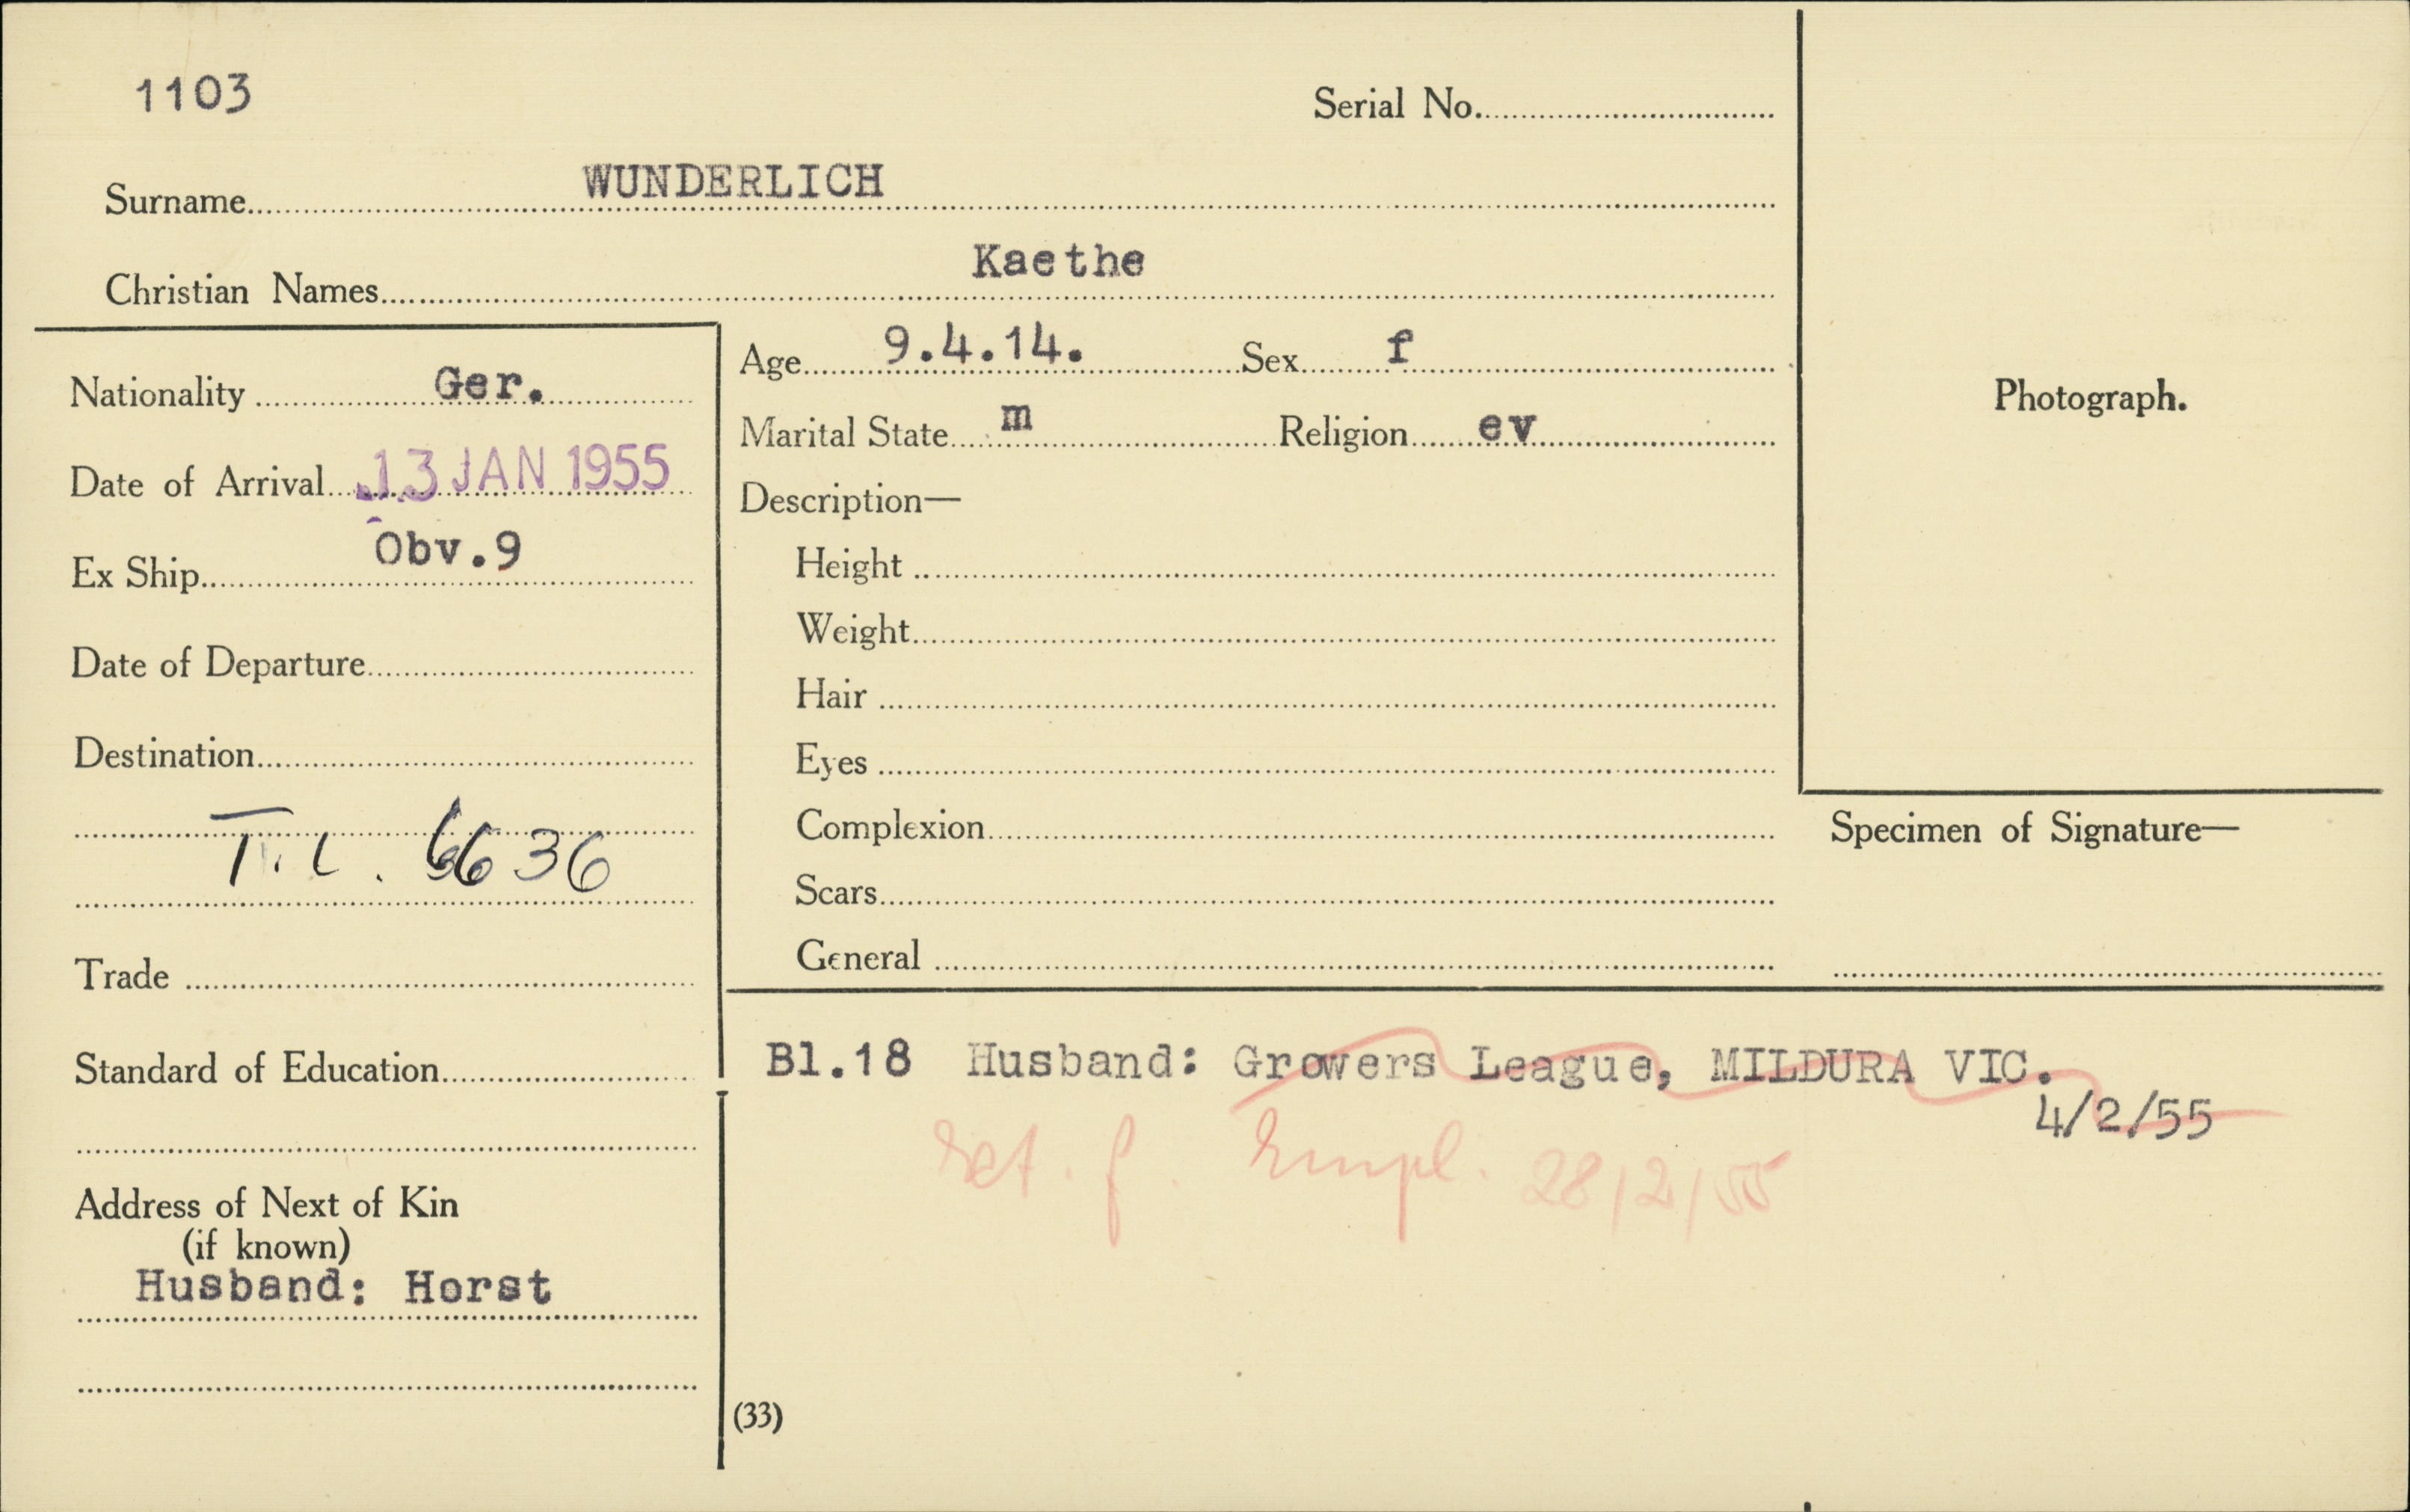 1103
Serial No.
Surname WUNDERLICH
Christian Names Kaethe
Nationality Ger.
Date of Arrival 13 JAN 1955
Ex Ship Obv.9
Date of Departure
Destination
6636
Trade
Standard of Education
Address of Next of Kin
(if known)
Husband: Horst
Age 9.4.14. Sex f
Marital State m Religion ev
Description—
Height
Weight
Hair
Eyes
Complexion
Scars
General
Photograph.
Specimen of Signature—
Bl.18 Husband: Growers League, MILDURA VIC.
4/2/55
ret. f. Empl. 28/2/55
(33)